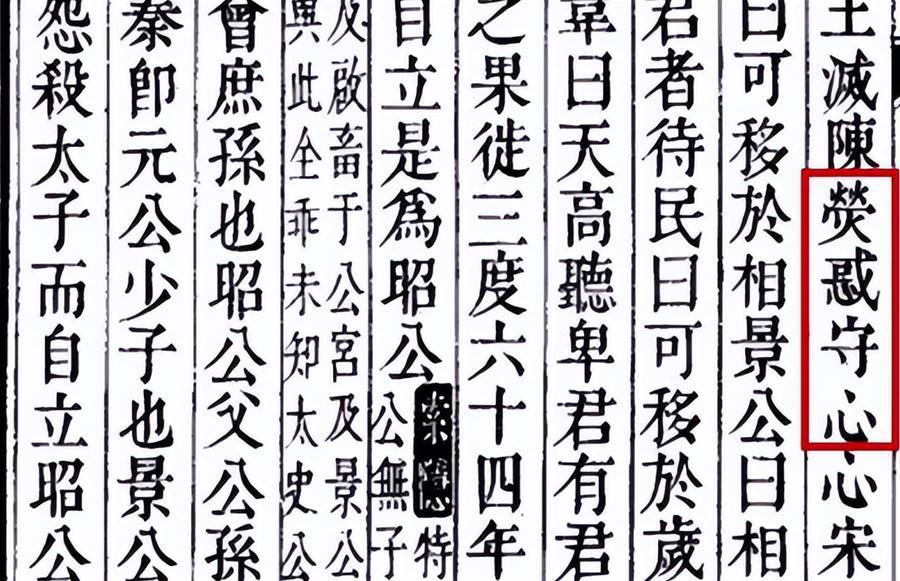 王滅陳熒惑守心心宋
曰可移於相景公曰相
君者待民曰可移於歲
韋曰天高聽卑君有君
之果徙三度六十四年
自立是爲昭公
索隱特
公無子
及啟畜于公宮及景公
與此全乖未知太史公
曾庶孫也昭公父公孫
秦即元公少子也景公
怨殺太子而自立昭公